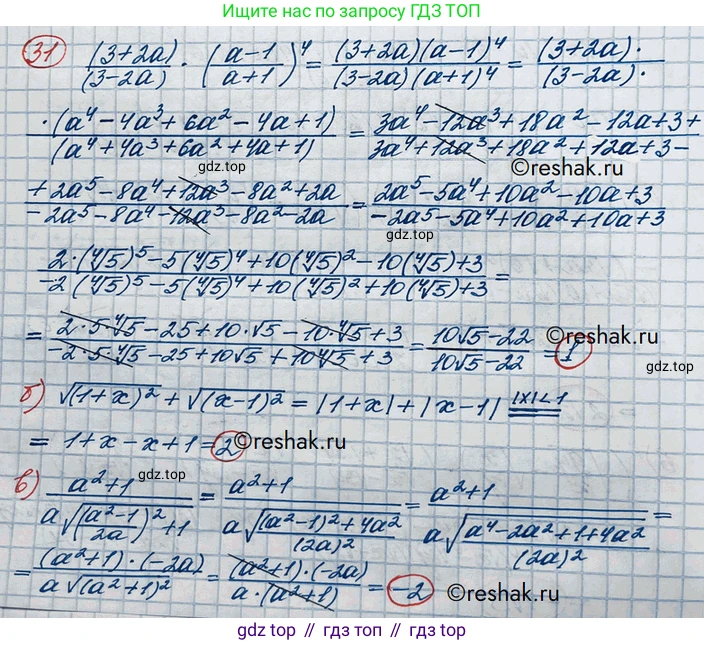 Ищите нас по запросу ГДЗ ТОП
31 (3+2a)/(3-2a) · ((a-1)/(a+1))^4 = (3+2a)(a-1)^4/(3-2a)(a+1)^4 = (3+2a)·/(3-2a)·
·(a^4-4a^3+6a^2-4a+1)/(a^4+4a^3+6a^2+4a+1) = 3a^4-12a^3+18a^2-12a+3+/3a^4+12a^3+18a^2+12a+3-
gdz.top
©reshak.ru
+2a^5-8a^4+12a^3-8a^2+2a/-2a^5-8a^4-12a^3-8a^2-2a = 2a^5-5a^4+10a^2-10a+3/-2a^5-5a^4+10a^2+10a+3
gdz.top
2·(∜5)^5-5(∜5)^4+10(∜5)^2-10(∜5)+3/-2(∜5)^5-5(∜5)^4+10(∜5)^2+10(∜5)+3 =
= 2·5·∜5-25+10·√5-10·∜5+3/-2·5·∜5-25+10√5+10∜5+3 = 10√5-22/10√5-22 = 1
©reshak.ru
gdz.top
б) √(1+x)^2 + √(x-1)^2 = |1+x|+|x-1| |x|<1
= 1+x-x+1=2
©reshak.ru
в) a^2+1/a√((a^2-1)/2a)^2+1 = a^2+1/a√((a^2-1)^2+4a^2)/(2a)^2 = a^2+1/a√(a^4-2a^2+1+4a^2)/(2a)^2 =
gdz.top
= (a^2+1)·(-2a)/a√(a^2+1)^2 = (a^2+1)·(-2a)/a·(a^2+1) = -2
©reshak.ru
gdz.top // гдз топ // gdz.top